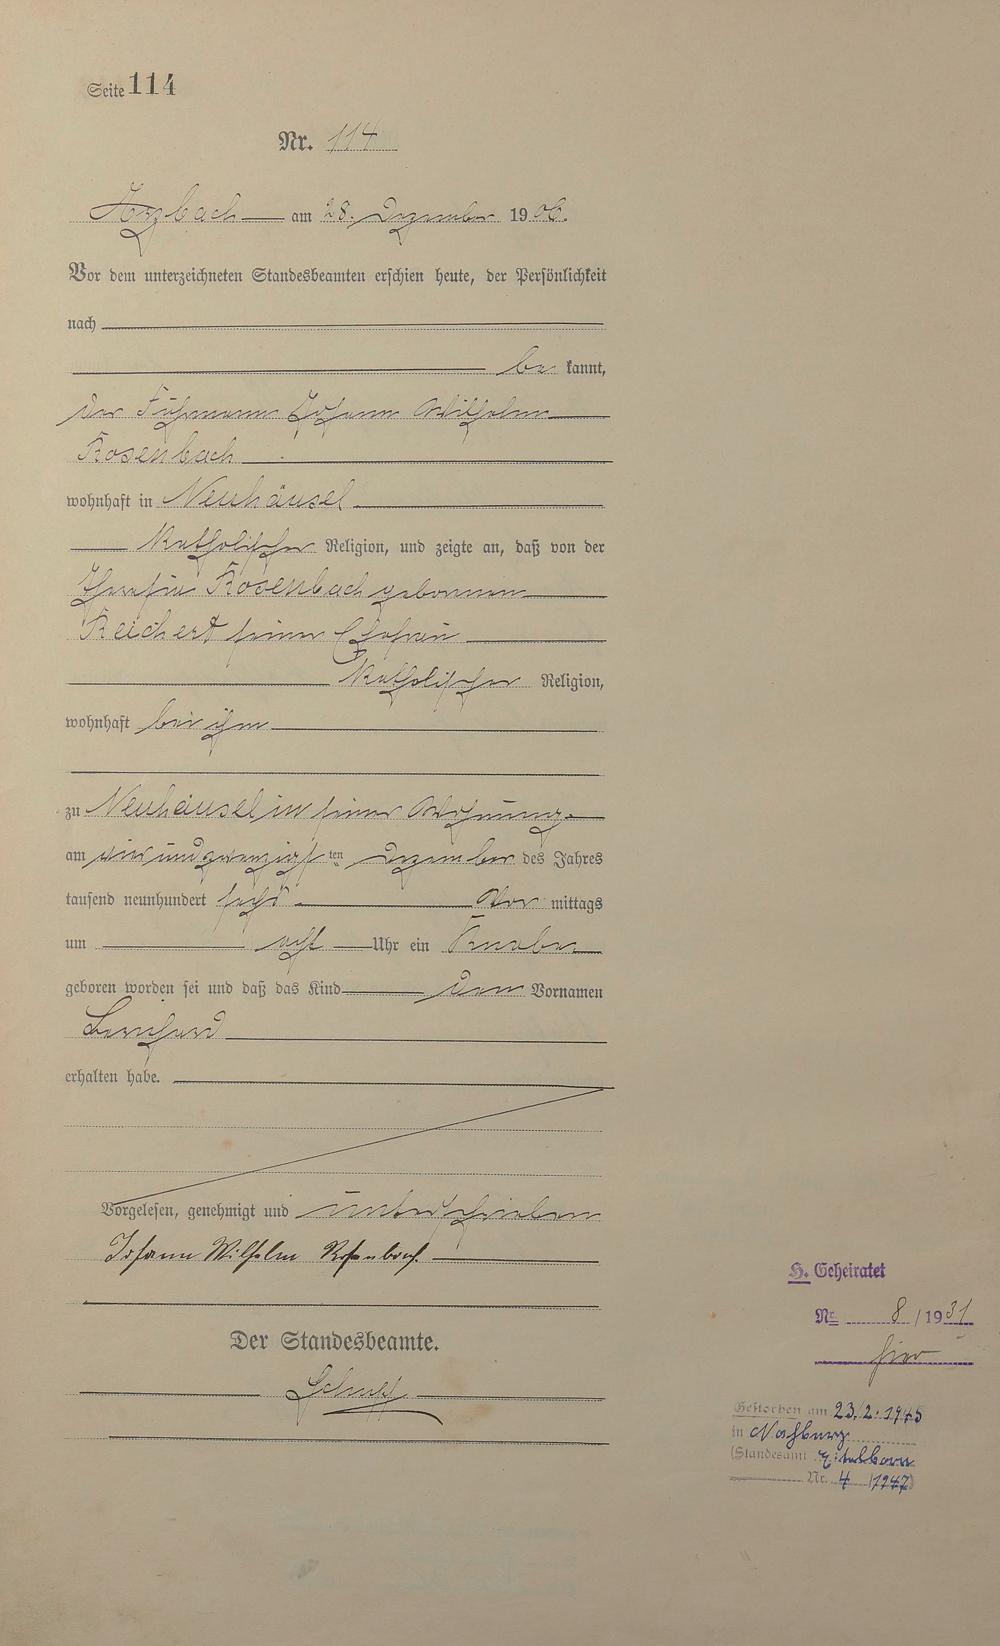 Seite 114
Nr. 114
Arzbach am 28. Dezember 1906.
Vor dem unterzeichneten Standesbeamten erschien heute, der Persönlichkeit
nach
be kannt,
der Fuhrmann Johann Wilhelm
Rosenbach
wohnhaft in Neuhäusel
katholischer Religion, und zeigte an, daß von der
Rosenbach geborenen
Reichert seiner Ehefrau
katholischer Religion,
wohnhaft bei ihm
zu Neuhäusel in seiner Wohnung
am vierundzwanzigsten Dezember des Jahres
tausend neunhundert sechs Vor mittags
um acht Uhr ein Knabe
geboren worden sei und daß das Kind den Vornamen
Bernhard
erhalten habe.
Vorgelesen, genehmigt und unterschrieben
Johann Wilhelm Rosenbach.
Der Standesbeamte.
H. Geheiratet
Nr. 8 / 1931
hier
Gestorben am 23/2. 1945
in Nabburg
(Standesamt Eitelborn
Nr. 4 /1947)